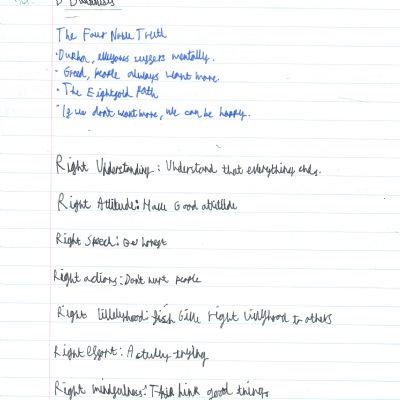 The Four Noble Truth
· Dukha, everyone suffers mentally.
· Greed, people always want more.
· The Eightfold Path
· If we don't want more, we can be happy.
Right Understanding: Understand that everything ends.
Right Attitude: Have Good attitude
Right Speech: Be honest
Right actions: Don't hurt people
Right Give right to others
Right Effort: Actully trying
Right mindfulness: Think good things